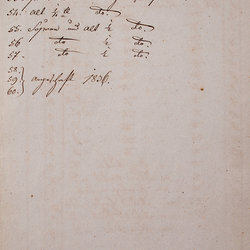 54. alt ½ do.
55. Sopran und alt ½ do.
56 do ½ do.
57. do ½ do.
58.
59. angeschaft 1836.
60.